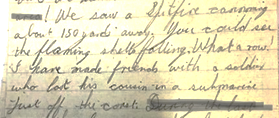 ! We saw a Spitfire cannoning
about 150 yards away. You could see
the flaming shells falling. What a row.
I have made friends with a soldier
who lost his cousin in a submarine
Just off the coast.